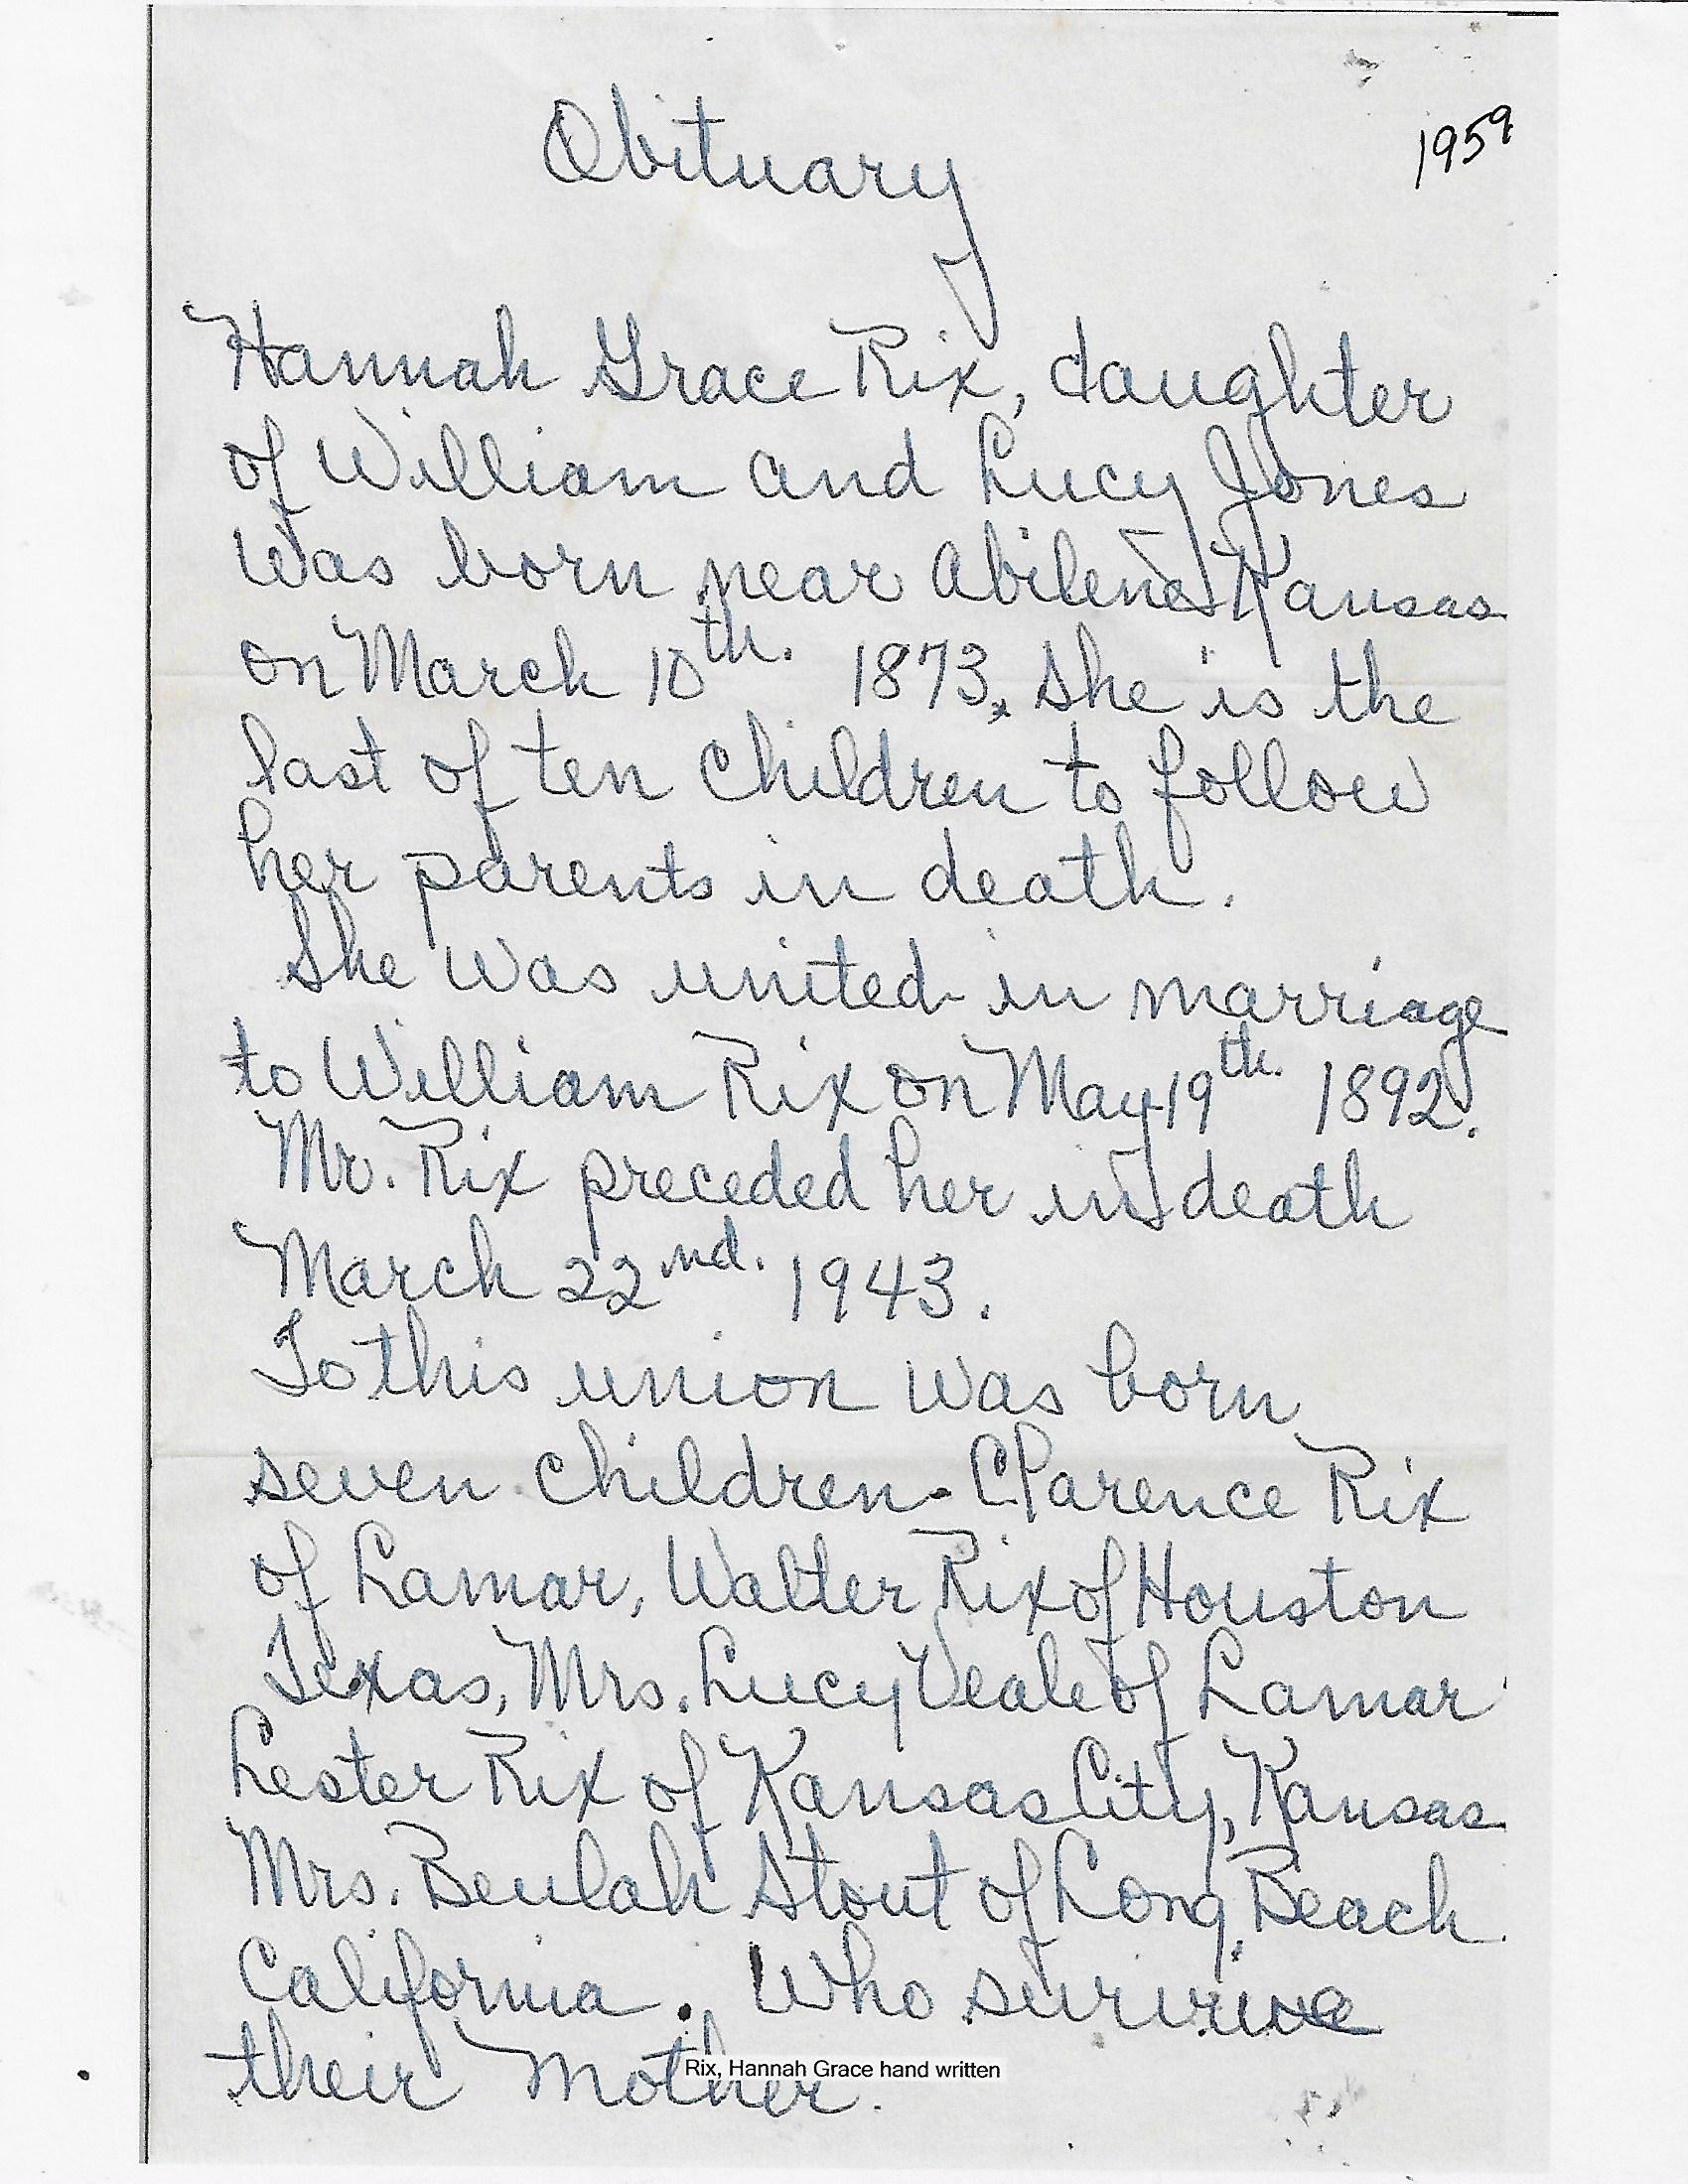 Obituary
1959
Hannah Grace Rix, daughter
of William and Lucy Jones
was born near Abilene Kansas
on March 10th. 1873. She is the
last of ten children to follow
her parents in death.
She was united in marriage
to William Rix on May 19th. 1892.
Mr. Rix preceded her in death
March 22nd. 1943.
To this union was born
seven children. Clarence Rix
of Lamar, Walter Rix of Houston
Texas, Mrs. Lucy Veale of Lamar
Lester Rix of Kansas City, Kansas
Mrs. Beulah Stout of Long Beach
California. Who survive
their Mother.
Rix, Hannah Grace hand written